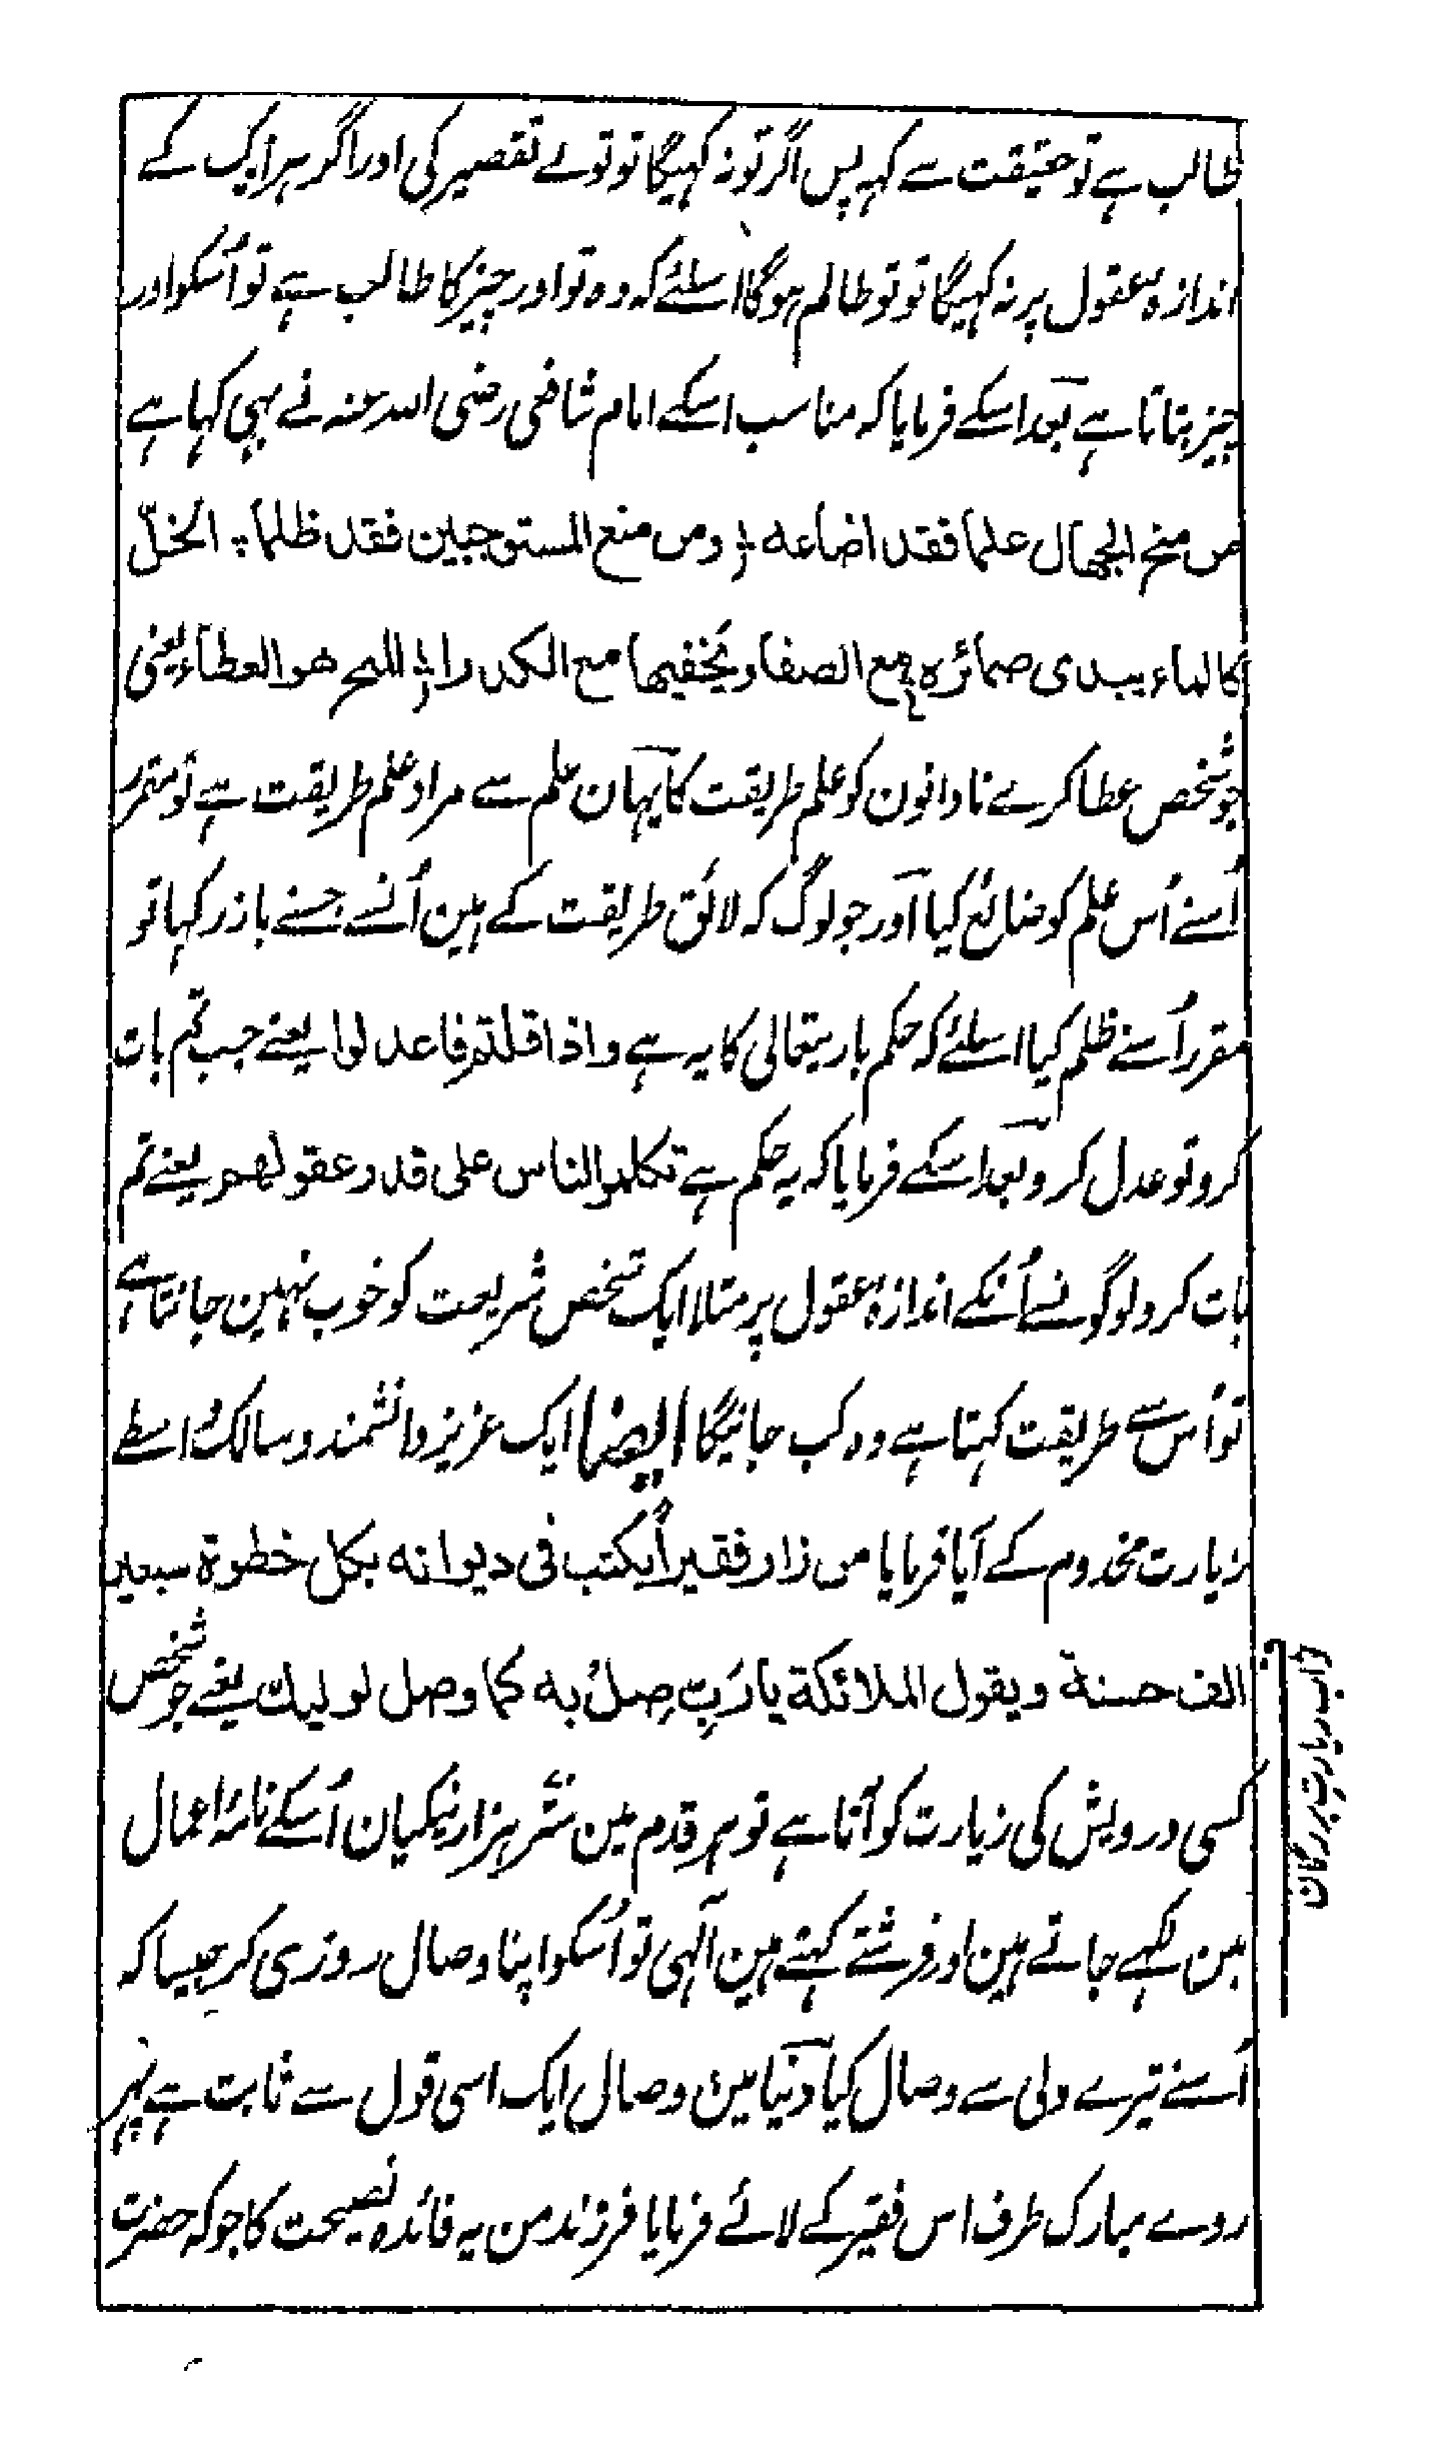 طالب ہے تو حقیقت سے کہہ پس اگر تو نہ کہیگا تو تونے تقصیر کی اور اگر ہر ایک کے
اندازہ عقول پر نہ کہیگا تو تو ظالم ہوگا اسلئے کہ وہ تو اور چیز کا طالب ہے تو اُسکو اور
چیز بتاتا ہے بعد اسکے فرمایا کہ مناسب اسکے امام شافعی رضی اللہ عنہ نے بہی کہا ہے
من منح الجهال علما فقد اضاعه ؛ ومن منع المستوجبين فقد ظلما ؛ الخلّ
كالماء يبدى ضمائره مع الصفا ويخفيها مع الكدرا ؛ المنح هو العطاء یعنی
جو شخص عطا کرے نادانون کو علم طریقت کا یہان علم سے مراد علم طریقت ہے تو مقرر
اُسنے اُس علم کو ضائع کیا اور جو لوگ کہ لائق طریقت کے ہین اُنسے جسنے باز رکہا تو
مقرر اُسنے ظلم کیا اسلئے کہ حکم باریتعالی کا یہ ہے واذا قلتم فاعدلوا یعنے جب تم بات
کرو تو عدل کرو بعد اسکے فرمایا کہ یہ حکم ہے تكلموا الناس على قدر عقولهم یعنے تم
بات کرو لوگونسے اُنکے اندازہ عقول پر مثلا ایک شخص شریعت کو خوب نہین جانتا ہے
تو اُس سے طریقت کہتا ہے وہ کب جانیگا ایضا ایک عزیز دانشمند و سالک واسطے
زیارت مخدوم کے آیا فرمایا من زار فقيراً يكتب فى ديوانه بكل خطوة سبعين
الف حسنة ويقول الملائكة يا رَبِّ صِلْ به كما وصل لوليك یعنے جو شخص
کسی درویش کی زیارت کو آتا ہے تو ہر قدم مین ستّر ہزار نیکیان اُسکے نامۂ اعمال
مین لکہے جاتے ہین اور فرشتے کہتے ہین الٰہی تو اُسکو اپنا وصال روزی کر جیسا کہ
اُسنے تیرے ولی سے وصال کیا دنیا مین وصال ایک اسی قول سے ثابت ہے پہر
روے مبارک طرف اس فقیر کے لائے فرمایا فرزند من یہ فائدہ نصیحت کا جو کہ حضرت
ثواب زیارت بزرگان